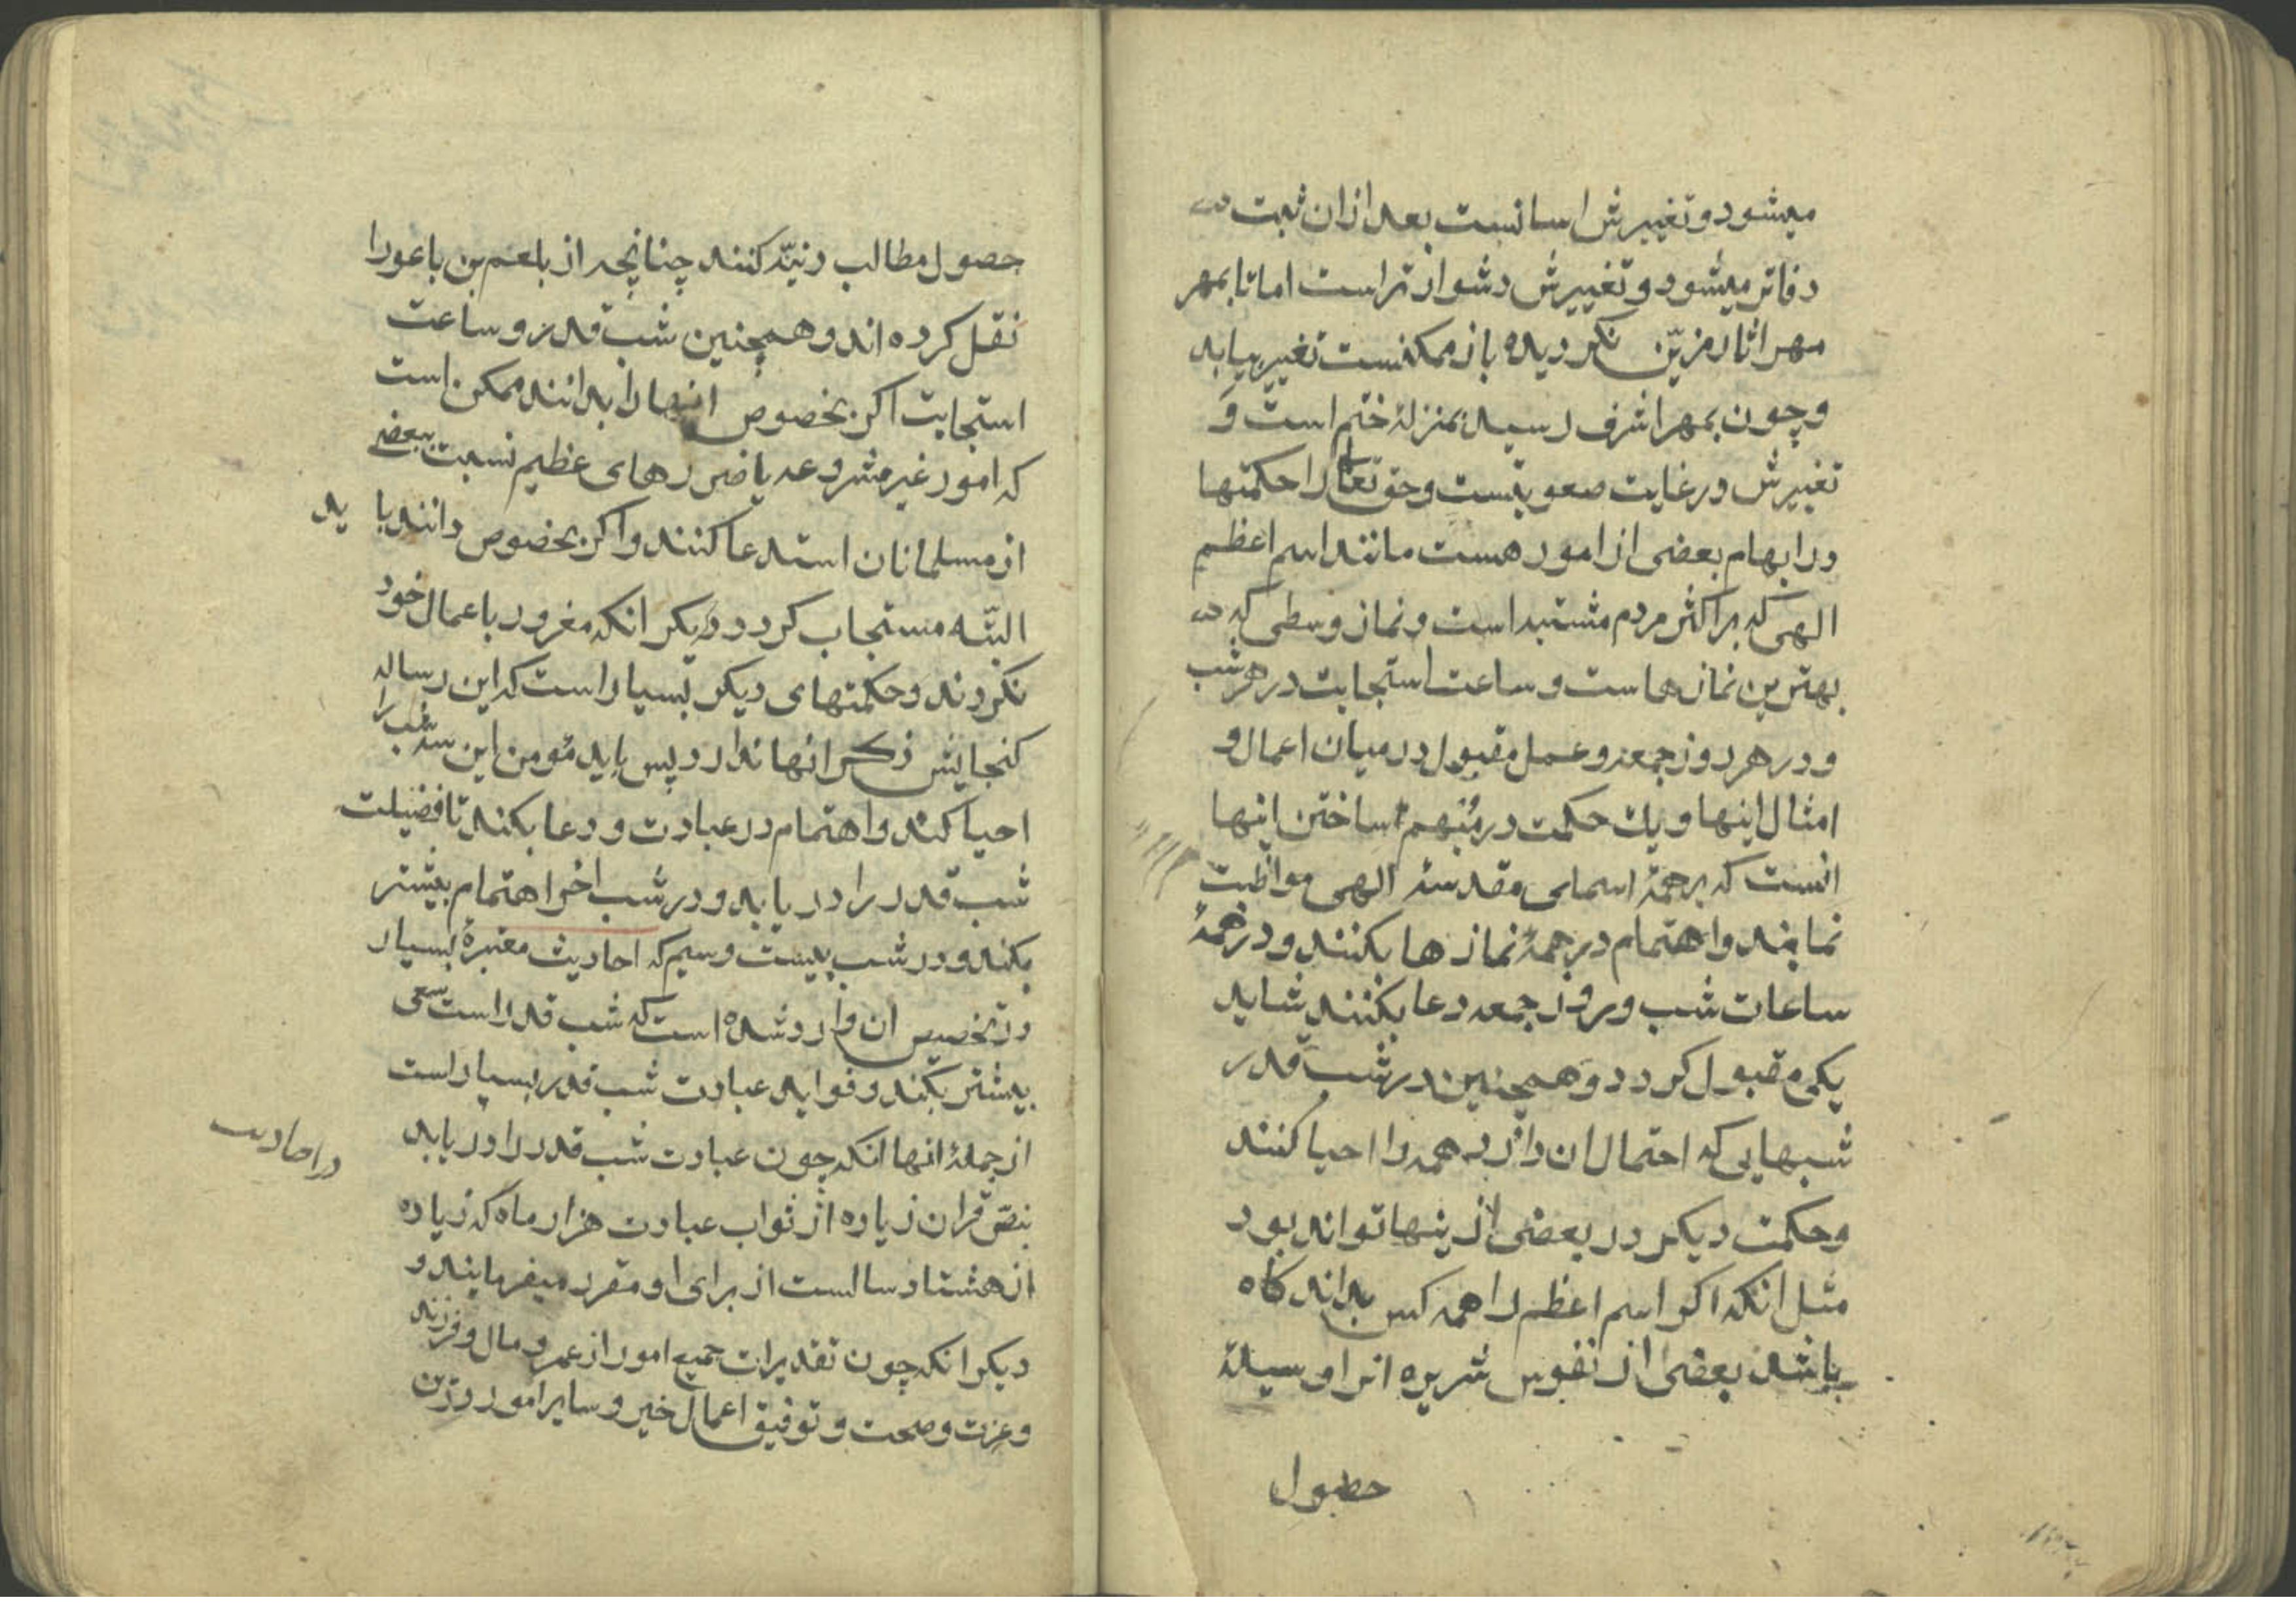 میشود و تغییرش اسانست بعد ازان ثبت
دفاتر میشود و تغییرش دشوار تر است اما تا بمهر
مهر اثار مزیّن نکردیده باز ممکنست تغییر بیابد
و چون بمهر اشرف رسید بمنزلهٔ ختم است و
تغییرش در غایت صعوبتست و حق تعالی را حکمتها
در ابهام بعضی از امور هست مانند اسم اعظم
الهی که بر اکثر مردم مشتبه است و نماز وسطی که
بهترین نمازهاست و ساعت استجابت در هر شب
و در هر روز جمعه و عمل مقبول در میان اعمال و
امثال اینها و یك حکمت در مبهم ساختن اینها
انست که بر همهٔ اسمای مقدسهٔ الهی مواظبت
نمایند و اهتمام در همهٔ نمازها بکنند و در همهٔ
ساعات شب و روز جمعه دعا بکنند شاید
یکی مقبول کردد و همچنین در شب قدر
شبهایی که احتمال ان دارد همه را احیا کنند
و حکمت دیکر در بعضی از ینها تواند بود
مثل انکه اکر اسم اعظم را همه کس بداند کاه
باشد بعضی از نفوس شریره انرا وسیلهٔ
حصول
حصول مطالب دنیّه کنند چنانچه از بلعم بن باعورا
نقل کرده اند و همچنین شب قدر و ساعت
استجابت اکر بخصوص انها را بدانند ممکن است
که امور غیر مشروعه یا ضررهای عظیم نسبت ببعضی
از مسلمانان استدعا کنند و اکر بخصوص دانند با ید
البتّه مستجاب کردد و دیکر انکه مغرور باعمال خود
نکردند و حکمتهای دیکر بسیار است که این رساله
کنجایش ذکر انها ندارد پس باید مؤمن این سه شب را
احیا کند و اهتمام در عبادت و دعا بکند تا فضیلت
شب قدر را دریابد و در شب اخر اهتمام بیشتر
بکند و در شب بیست و سیم که احادیث معتبرهٔ بسیار
در تخصیص ان وارد شده است که شب قدر است سعی
بیشتر بکند و فواید عبادت شب قدر بسیار است
از جملهٔ انها انکه چون عبادت شب قدر را دریابد
در احادیث
بنصّ قران زیاده از ثواب عبادت هزار ماه که زیاده
از هشتاد سالست از برای او مقرر میفرمایند و
دیکر انکه چون تقدیرات جمیع امور از عمر و مال و فرزند
و عزت و صحت و توفیق اعمال خیر و سایر امور درین